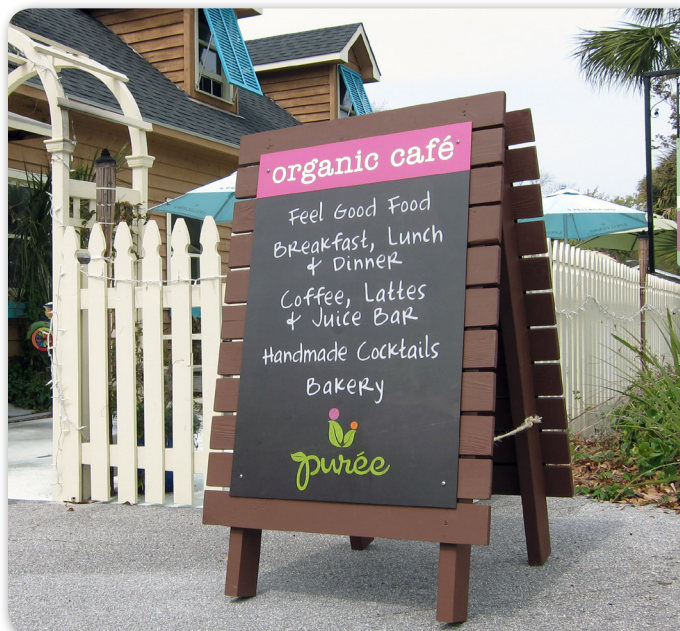 organic café
Feel Good Food
Breakfast, Lunch
& Dinner
Coffee, Lattes
& Juice Bar
Handmade Cocktails
Bakery
purée